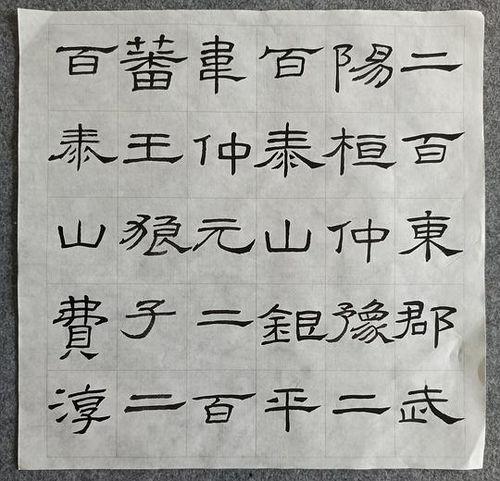 二百東郡武
陽桓仲豫二
百泰山鉅平
韋仲元二百
蕃王狼子二
百泰山費淳